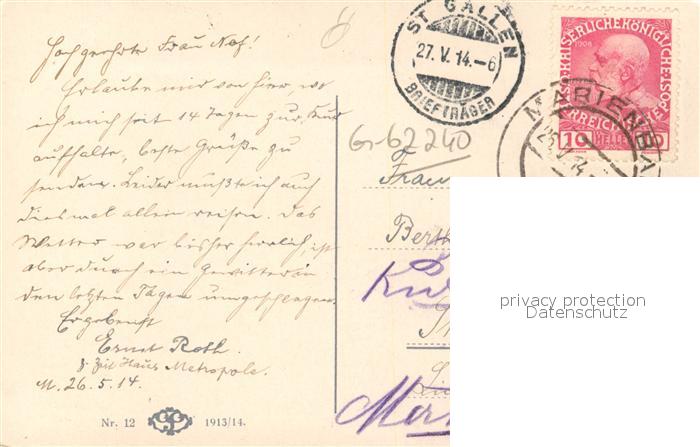 Hochgeehrte Frau Naf!
Erlaube mir von hier, wo
ich mich seit 14 Tagen zur Kur
aufhalte, beste Grüße zu
senden. Leider mußte ich auch
diesmal allein reisen. Das
Wetter war bisher herrlich, ist
aber durch ein Gewitter in
den letzten Tagen umgeschlagen.
Ergebenst
Ernst Roth.
z. Zeit Haus Metropole.
M. 26.5.14.
Nr. 12 1913/14.
ST. GALLEN
27. V. 14.–6
BRIEFTRÄGER
Gr-62240
KAISERLICHE KÖNIGLICHE
1908
10 HELLER
MARIENBA
Frau
Berth
privacy protection
Datenschutz